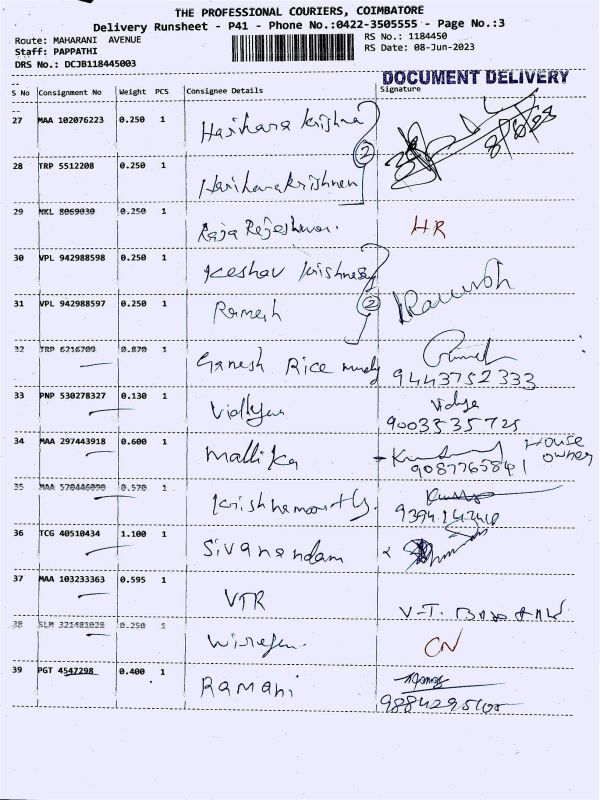 THE PROFESSIONAL COURIERS, COIMBATORE
Delivery Runsheet - P41 - Phone No.:0422-3505555 - Page No.:3
Route: MAHARANI AVENUE RS No.: 1184450
Staff: PAPPATHI RS Date: 08-Jun-2023
DRS No.: DCJB118445003
DOCUMENT DELIVERY
S No Consignment No Weight PCS Consignee Details Signature
27 MAA 102076223 0.250 1 Harihara krishna 8/6/23
2
28 TRP 5512208 0.250 1 Hariharakrishnan
29 NKL 8069030 0.250 1 Raja Rajeshwari. HR
30 VPL 942988598 0.250 1 Keshav krishna
31 VPL 942988597 0.250 1 Ramesh 2
32 TRP 6216709 0.870 1 Ganesh Rice mundy 9443752333
33 PNP 530278327 0.130 1 Vidhya Vidya
9003535725
34 MAA 297443918 0.600 1 Mallika House owner
9087765841
35 MAA 570446090 0.570 1 Krishnamoorthy
36 TCG 40510434 1.100 1 Sivanandam
37 MAA 103233363 0.595 1 VTR V-T.
38 SLM 321481028 0.250 1 CN
39 PGT 4547298 0.400 1 Ramani